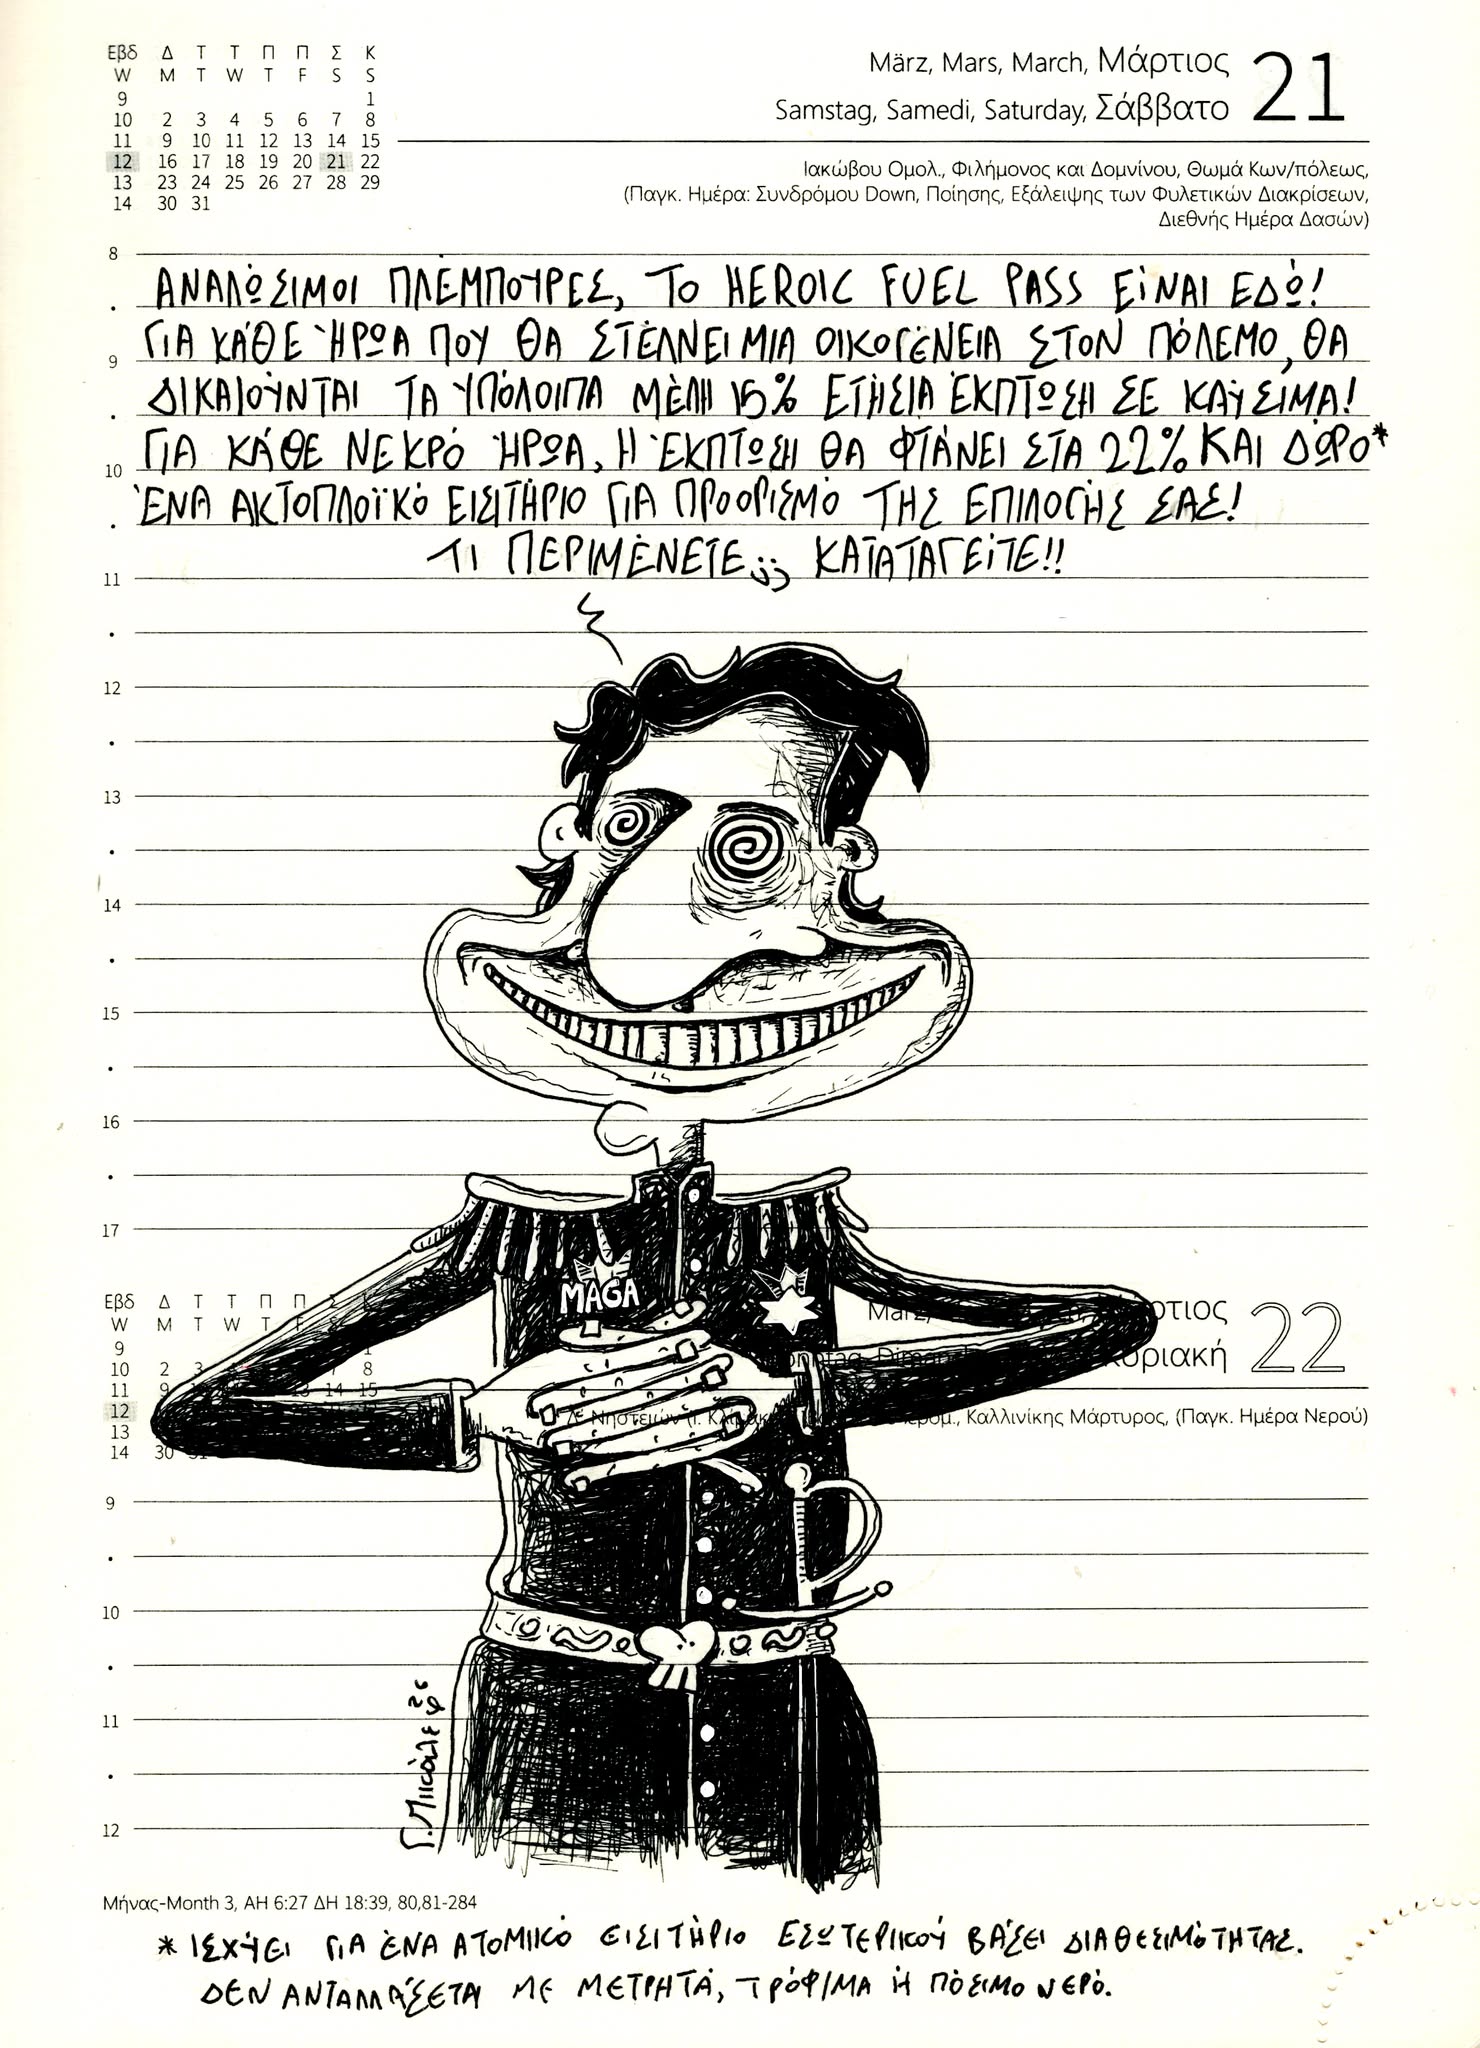 Εβδ Δ Τ Τ Π Π Σ Κ
W M T W T F S S
9 1
10 2 3 4 5 6 7 8
11 9 10 11 12 13 14 15
12 16 17 18 19 20 21 22
13 23 24 25 26 27 28 29
14 30 31
März, Mars, March, Μάρτιος
Samstag, Samedi, Saturday, Σάββατο
21
Ιακώβου Ομολ., Φιλήμονος και Δομνίνου, Θωμά Κων/πόλεως,
(Παγκ. Ημέρα: Συνδρόμου Down, Ποίησης, Εξάλειψης των Φυλετικών Διακρίσεων,
Διεθνής Ημέρα Δασών)
8
ΑΝΑΛΏΣΙΜΟΙ ΠΛΈΜΠΟΥΡΕΣ, ΤΟ HEROIC FUEL PASS ΕΊΝΑΙ ΕΔΏ!
ΓΙΑ ΚΆΘΕ ΉΡΩΑ ΠΟΥ ΘΑ ΣΤΈΛΝΕΙ ΜΙΑ ΟΙΚΟΓΈΝΕΙΑ ΣΤΟΝ ΠΌΛΕΜΟ, ΘΑ
9
ΔΙΚΑΙΟΎΝΤΑΙ ΤΑ ΥΠΌΛΟΙΠΑ ΜΈΛΗ 15% ΕΤΉΣΙΑ ΈΚΠΤΩΣΗ ΣΕ ΚΑΎΣΙΜΑ!
ΓΙΑ ΚΆΘΕ ΝΕΚΡΌ ΉΡΩΑ, Η ΈΚΠΤΩΣΗ ΘΑ ΦΤΆΝΕΙ ΣΤΑ 22% ΚΑΙ ΔΏΡΟ*
10
ΈΝΑ ΑΚΤΟΠΛΟΪΚΌ ΕΙΣΙΤΉΡΙΟ ΓΙΑ ΠΡΟΟΡΙΣΜΌ ΤΗΣ ΕΠΙΛΟΓΉΣ ΣΑΣ!
ΤΙ ΠΕΡΙΜΈΝΕΤΕ;; ΚΑΤΑΤΑΓΕΊΤΕ!!
11
12
13
14
15
16
17
MAGA
Εβδ Δ Τ Τ Π Π
W M T W T
9
10 2 3 8
11 9 13 14 15
12
13
14 30 31
März,
22
Κυριακή
Νηστειών Καλλινίκης Μάρτυρος, (Παγκ. Ημέρα Νερού)
9
10
11
12
Γ. Μικάλεφ 26
Μήνας-Month 3, ΑΗ 6:27 ΔΗ 18:39, 80,81-284
* ΙΣΧΎΕΙ ΓΙΑ ΈΝΑ ΑΤΟΜΙΚΌ ΕΙΣΙΤΉΡΙΟ ΕΣΩΤΕΡΙΚΟΎ ΒΆΣΕΙ ΔΙΑΘΕΣΙΜΌΤΗΤΑΣ.
ΔΕΝ ΑΝΤΑΛΛΆΣΕΤΑΙ ΜΕ ΜΕΤΡΗΤΆ, ΤΡΌΦΙΜΑ Ή ΠΌΣΙΜΟ ΝΕΡΌ.